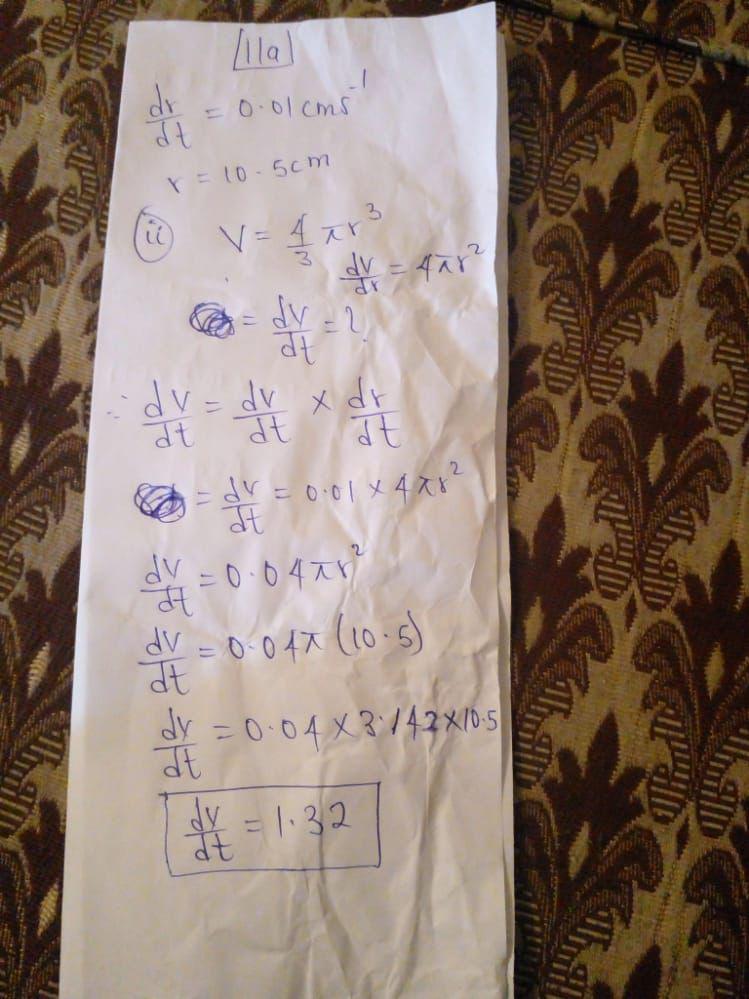 11a
dr/dt = 0.01 cms⁻¹
r = 10.5cm
ii V = 4/3 πr³
dv/dr = 4πr²
= dv/dt = ?
∴ dv/dt = dv/dt × dr/dt
= dv/dt = 0.01 × 4πr²
dv/dt = 0.04πr²
dv/dt = 0.04π (10.5)
dv/dt = 0.04 × 3.142 × 10.5
dv/dt = 1.32